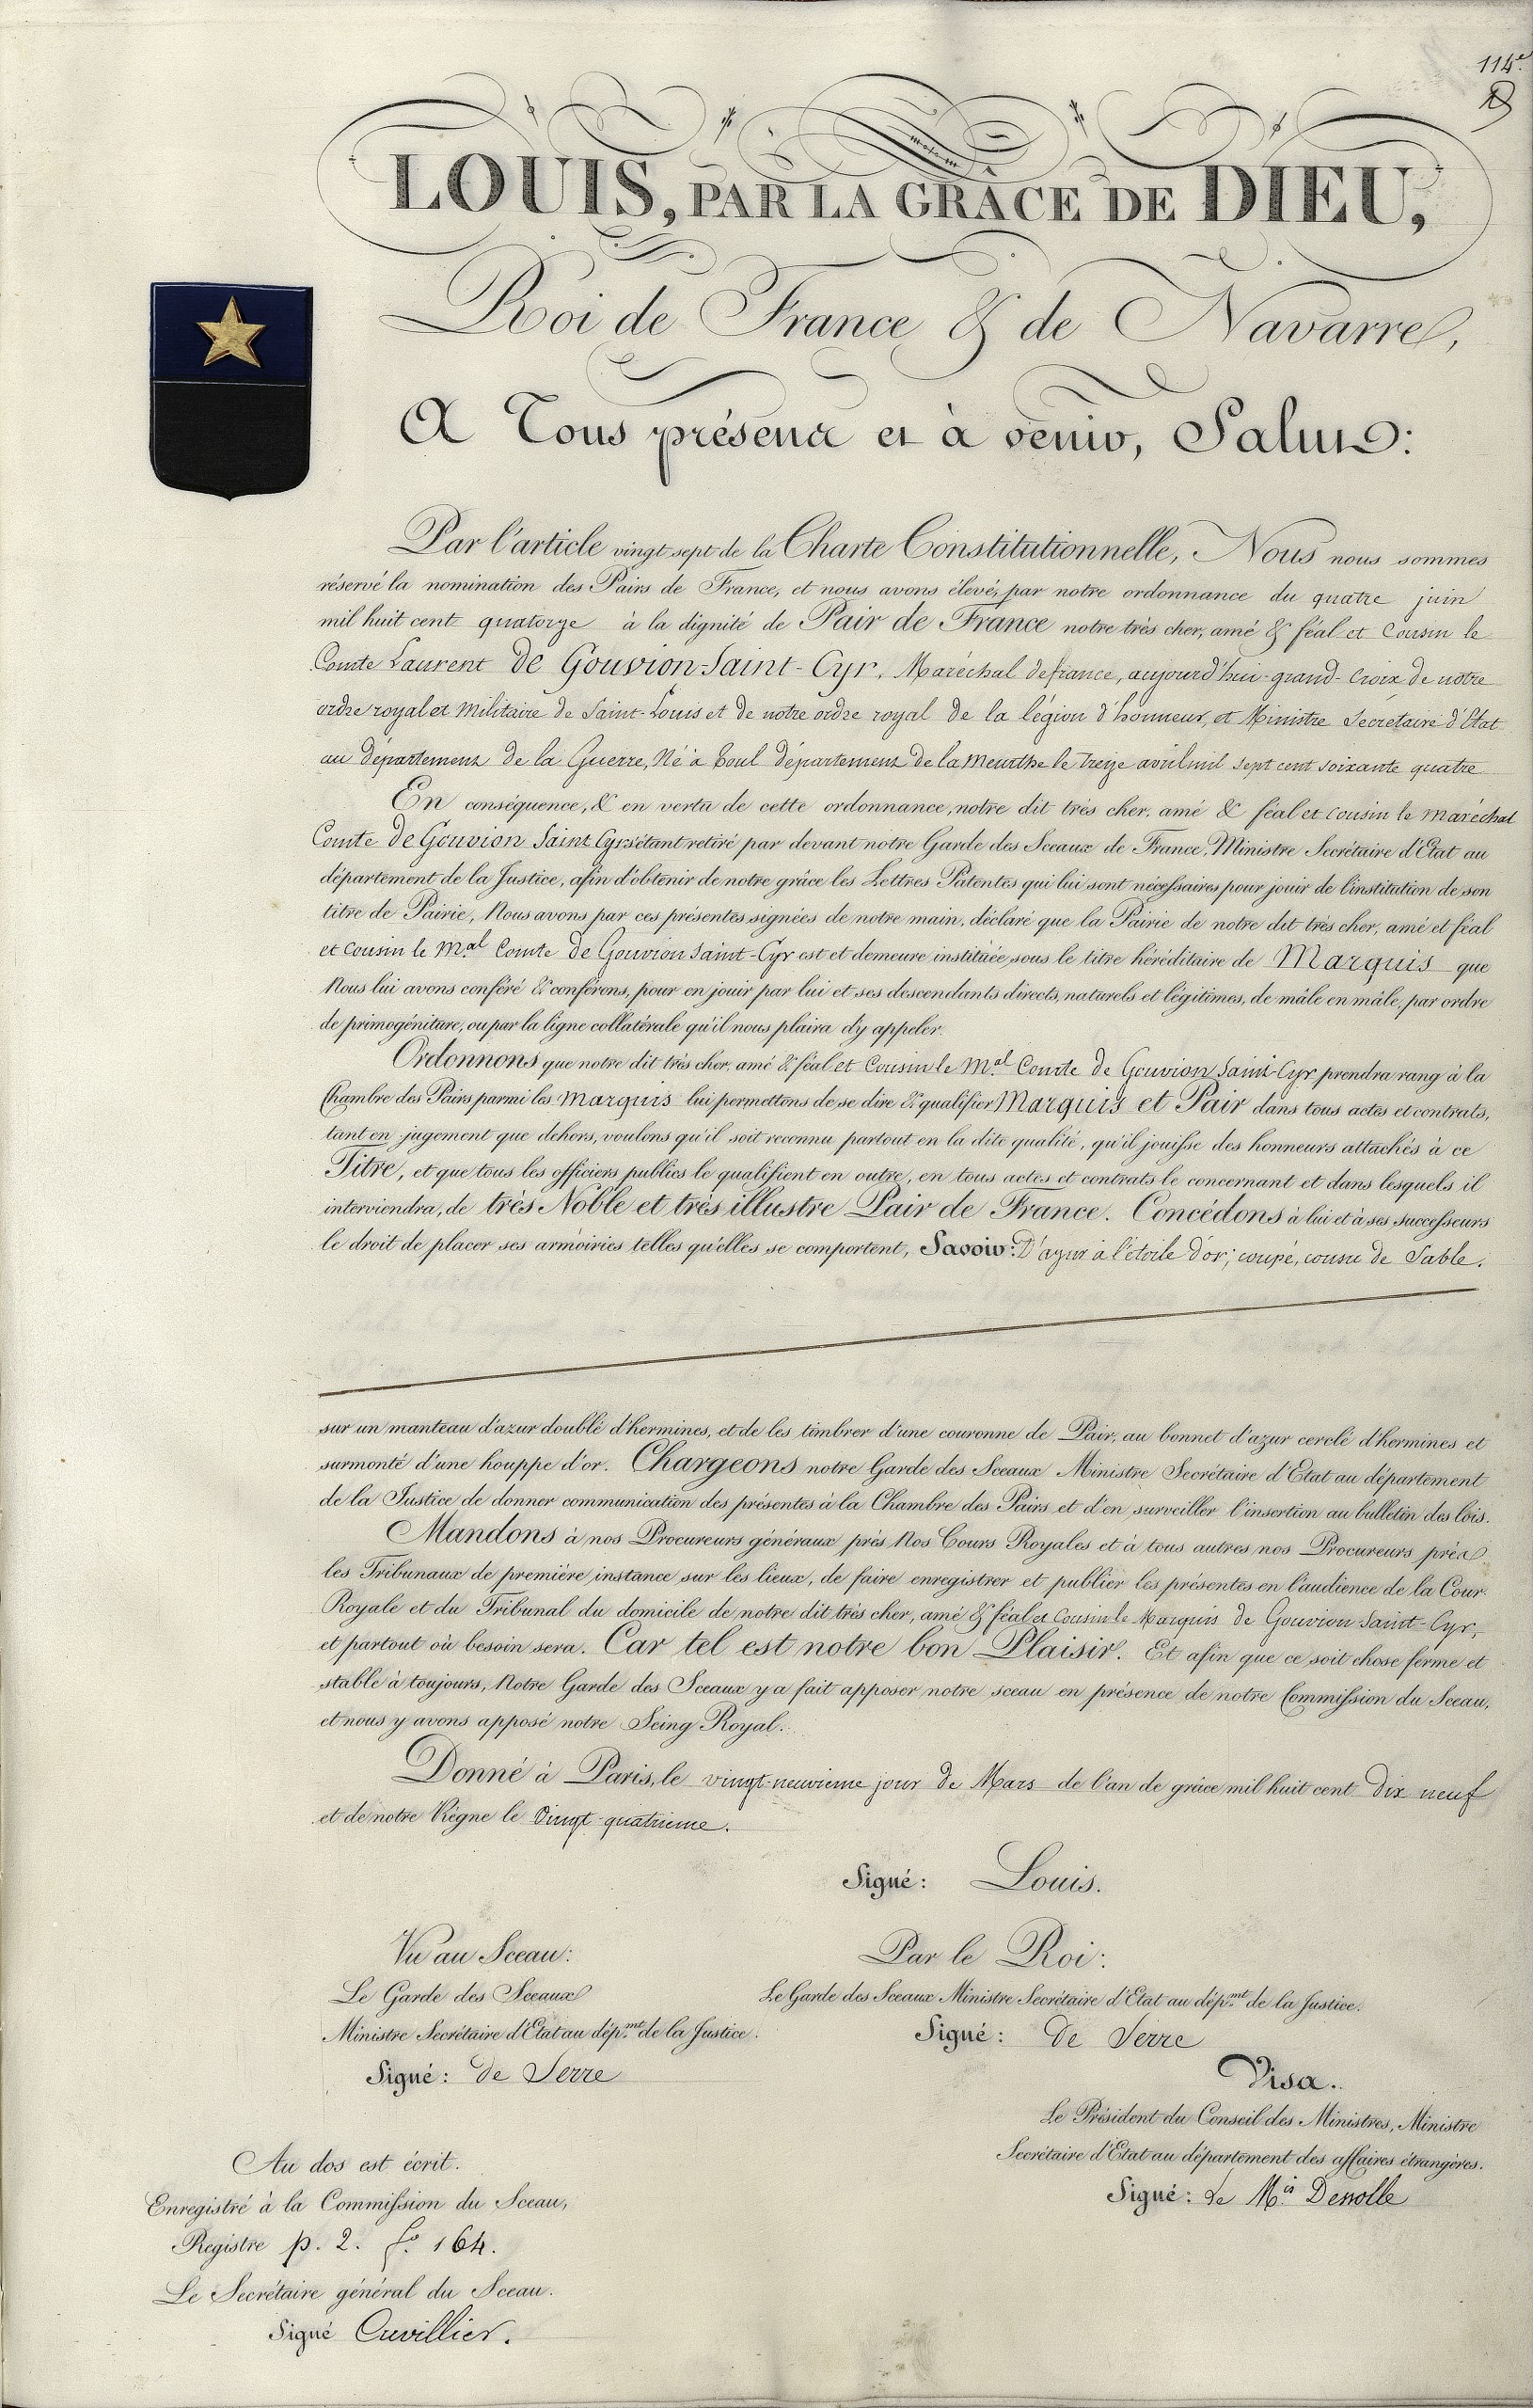 114e
LOUIS, PAR LA GRÂCE DE DIEU,
Roi de France & de Navarre,
A Tous présens et à venir, Salut:
Par l'article vingt sept de la Charte Constitutionnelle, Nous nous sommes
réservé la nomination des Pairs de France, et nous avons élevé, par notre ordonnance du quatre juin
mil huit cent quatorze à la dignité de Pair de France notre très cher, amé & féal et Cousin le
Comte Laurent de Gouvion-Saint-Cyr, Maréchal de france, aujourd'hui grand-Croix de notre
ordre royal et Militaire de Saint-Louis et de notre ordre royal de la légion d'honneur, et Ministre Secrétaire d'Etat
au département de la Guerre, Né à Toul département de la Meurthe le treize avril mil sept cent soixante quatre
En conséquence, & en vertu de cette ordonnance, notre dit très cher, amé & féal et cousin le maréchal
Comte de Gouvion Saint Cyr s'étant retiré par devant notre Garde des Sceaux de France, Ministre Secrétaire d'Etat au
département de la Justice, afin d'obtenir de notre grâce les Lettres Patentes qui lui sont nécessaires pour jouir de l'institution de son
titre de Pairie, Nous avons par ces présentes signées de notre main, déclaré que la Pairie de notre dit très cher, amé et féal
et cousin le M.al Comte de Gouvion Saint-Cyr est et demeure instituée sous le titre héréditaire de Marquis que
Nous lui avons conféré & conférons, pour en jouir par lui et ses descendants directs, naturels et légitimes, de mâle en mâle, par ordre
de primogéniture, ou par la ligne collatérale qu'il nous plaira d'y appeler.
Ordonnons que notre dit très cher, amé & féal et Cousin le M.al Comte de Gouvion Saint-Cyr prendra rang à la
Chambre des Pairs parmi les Marquis lui permettons de se dire & qualifier Marquis et Pair dans tous actes et contrats,
tant en jugement que dehors, voulons qu'il soit reconnu partout en la dite qualité, qu'il jouisse des honneurs attachés à ce
Titre, et que tous les officiers publics le qualifient en outre, en tous actes et contrats le concernant et dans lesquels il
interviendra, de très Noble et très illustre Pair de France. Concédons à lui et à ses successeurs
le droit de placer ses armoiries telles qu'elles se comportent, Savoir: D'azur à l'étoile d'or; coupé, cousu de Sable.
sur un manteau d'azur doublé d'hermines, et de les timbrer d'une couronne de Pair, au bonnet d'azur cerclé d'hermines et
surmonté d'une houppe d'or. Chargeons notre Garde des Sceaux Ministre Secrétaire d'Etat au département
de la Justice de donner communication des présentes à la Chambre des Pairs et d'en surveiller l'insertion au bulletin des lois.
Mandons à nos Procureurs généraux près Nos Cours Royales et à tous autres nos Procureurs près
les Tribunaux de première instance sur les lieux, de faire enregistrer et publier les présentes en l'audience de la Cour
Royale et du Tribunal du domicile de notre dit très cher, amé & féal et Cousin le Marquis de Gouvion Saint-Cyr,
et partout où besoin sera. Car tel est notre bon Plaisir. Et afin que ce soit chose ferme et
stable à toujours, Notre Garde des Sceaux y a fait apposer notre sceau en présence de notre Commission du Sceau,
et nous y avons apposé notre Seing Royal.
Donné à Paris, le vingt-neuvieme jour de Mars de l'an de grâce mil huit cent dix neuf
et de notre Règne le vingt-quatrieme.
Signé: Louis.
Vu au Sceau:
Le Garde des Sceaux
Ministre Secrétaire d'Etat au dép.mt de la Justice.
Signé: de Serre
Par le Roi:
Le Garde des Sceaux Ministre Secrétaire d'Etat au dép.mt de la Justice.
Signé: de Serre
Visa.
Le Président du Conseil des Ministres, Ministre
Secrétaire d'Etat au département des affaires étrangères.
Signé: Le M.is Dessolle
Au dos est écrit.
Enregistré à la Commission du Sceau,
Registre p. 2. f.o 164.
Le Secrétaire général du Sceau.
Signé Cuvillier.